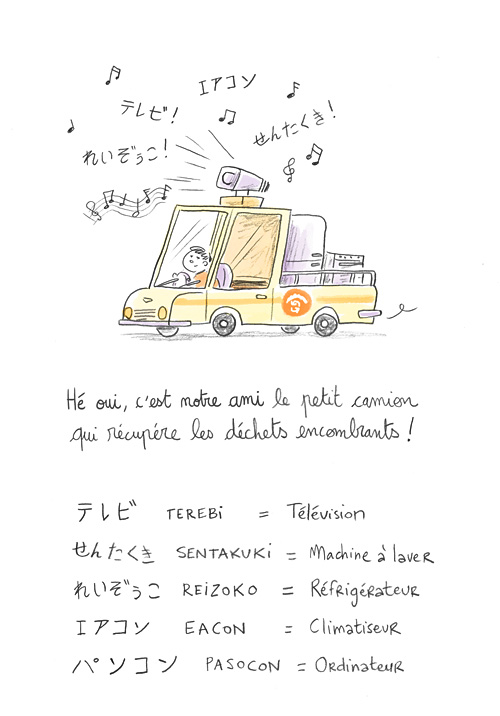 エアコン
テレビ!
せんたくき!
れいぞうこ!
Hé oui, c'est notre ami le petit camion
qui récupére les déchets encombrants !
テレビ TEREBi = Télévision
せんたくき SENTAKUKi = Machine à laveR
れいぞうこ REiZOKO = RéfRigéRateuR
エアコン EACON = ClimatiseuR
パソコン PASOCON = ORdinateuR